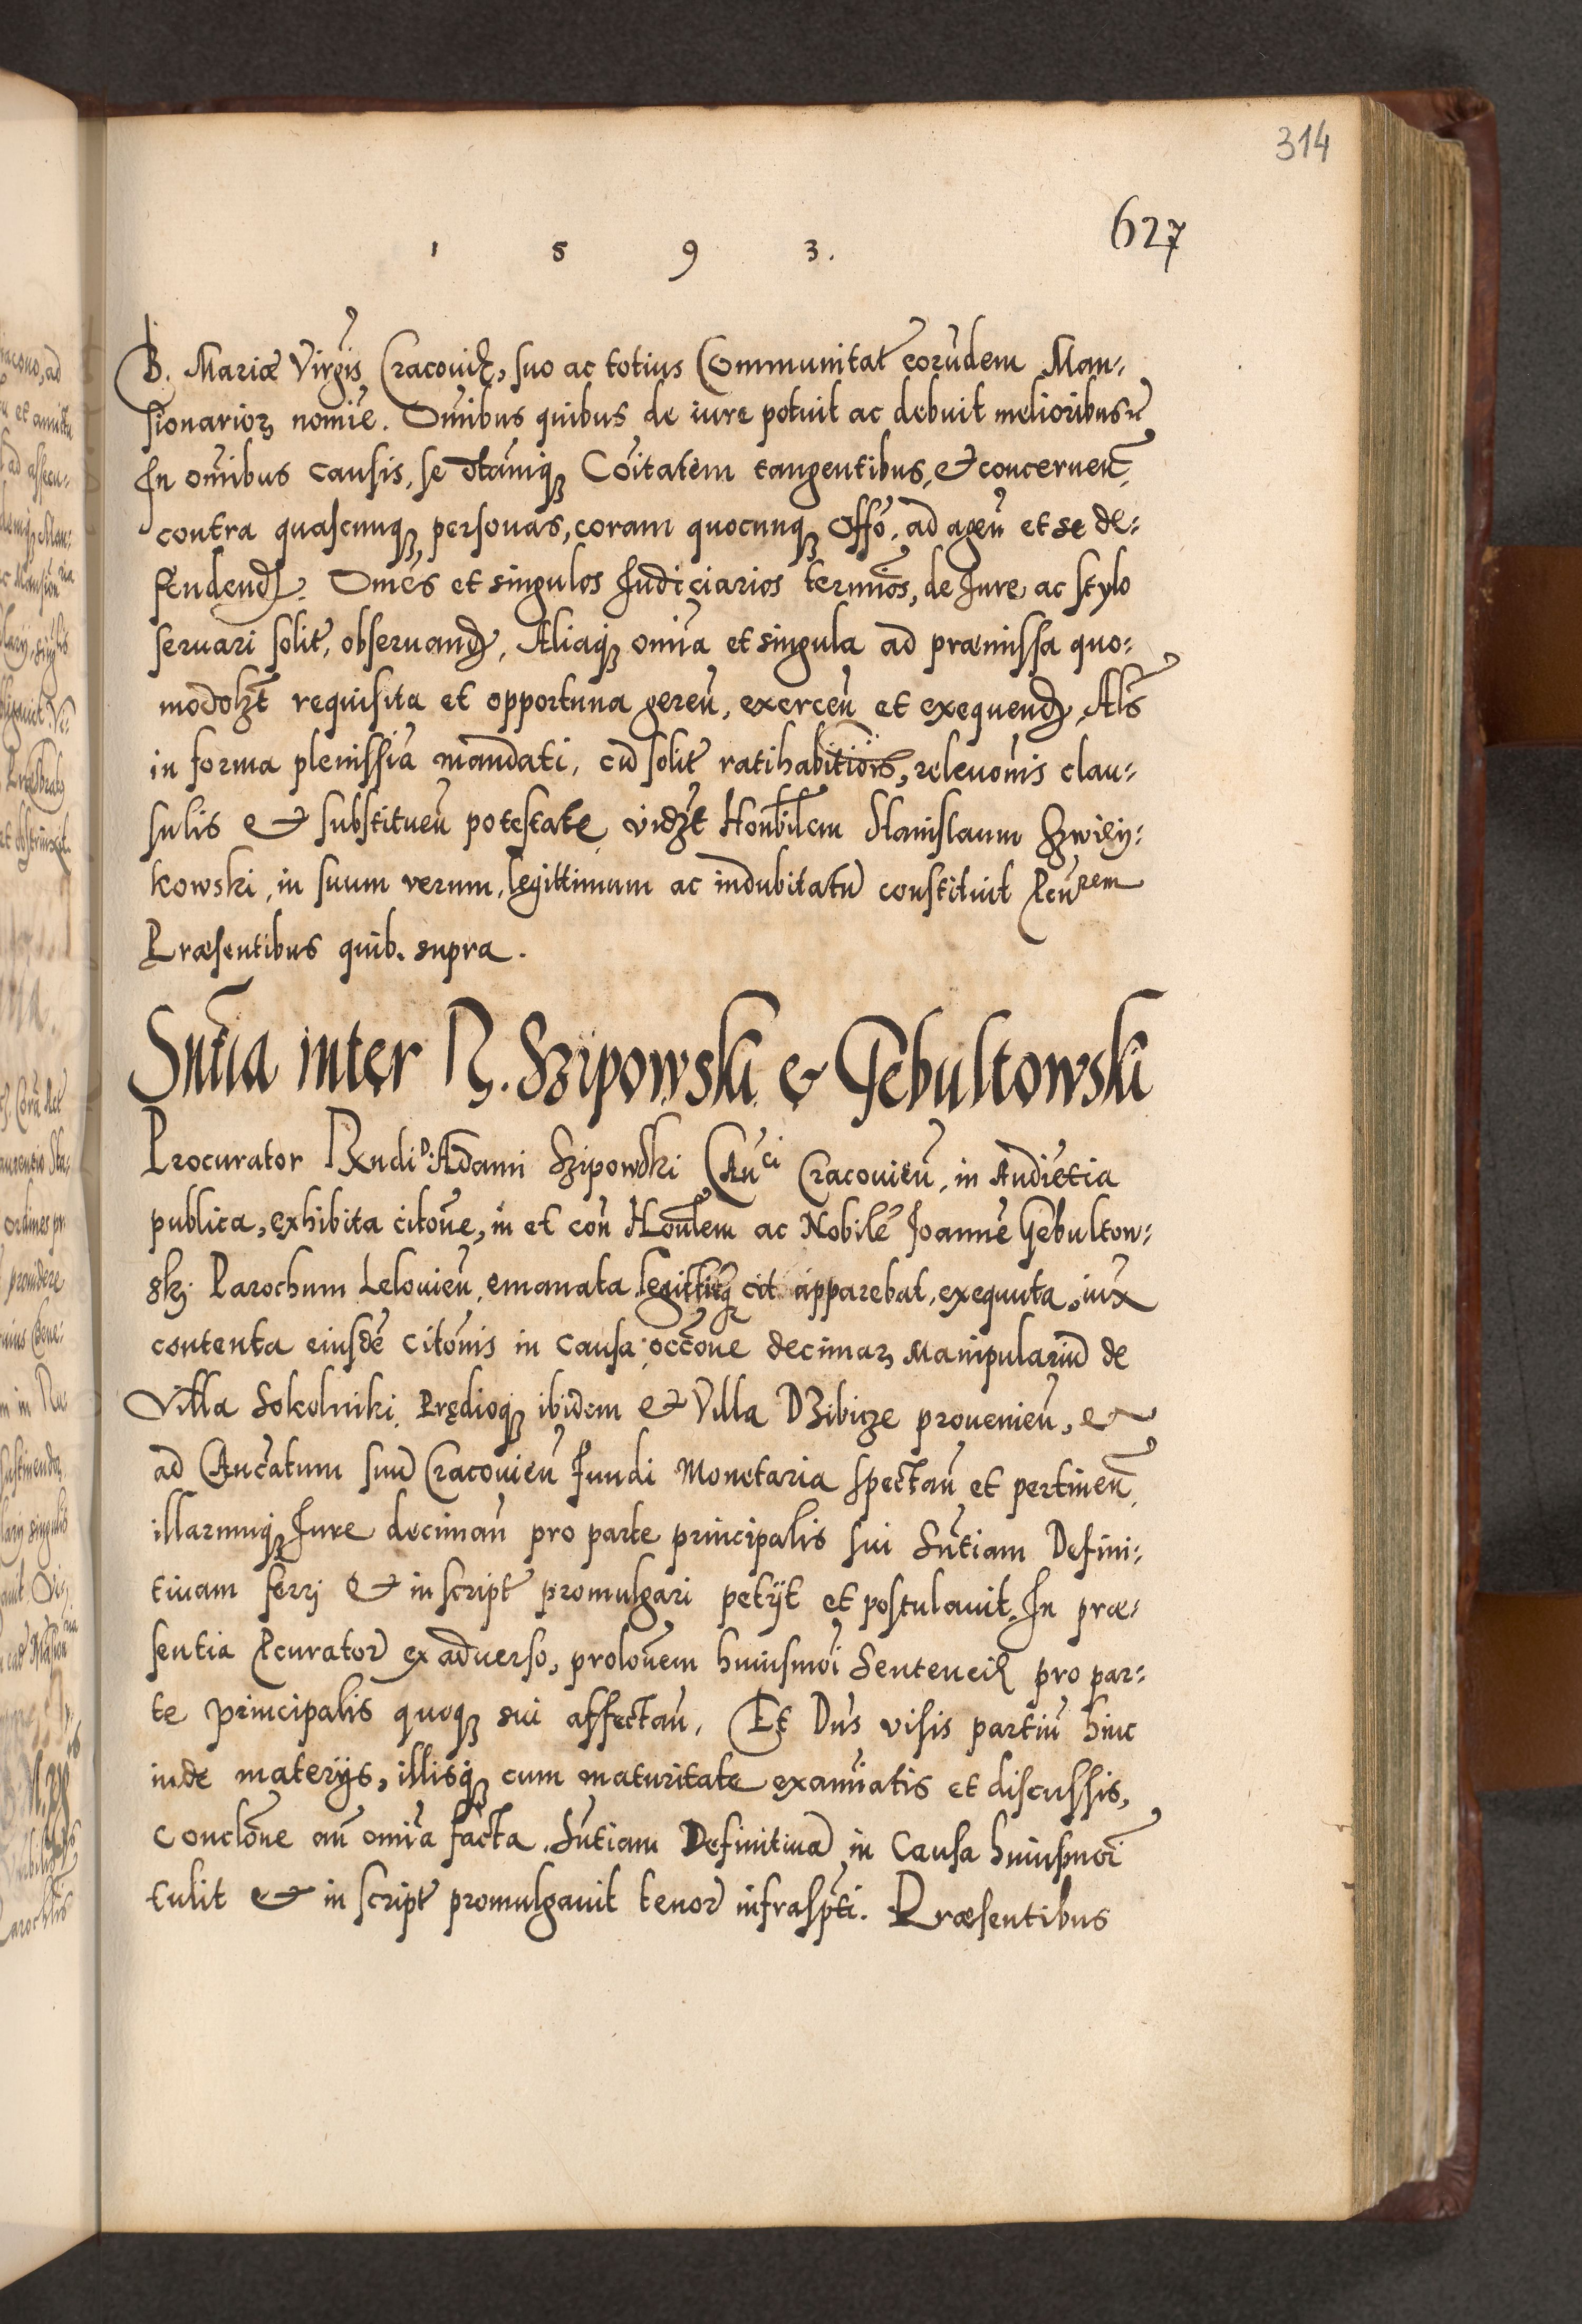 314
627
1 5 9 3.
B. Mariæ Virgis Cracouien, suo ac totius Communitat eorūdem Man:
sionarioꝝ nomīe. Omībus quibus de iure potuit ac debuit melioribus
In omībus causis, se dtamqꝫ Coītatem tangentibus, et concernen̄,
contra quascunqꝫ personas, coram quocunqꝫ Offō, ad agen̄ et se de:
fendend. Omēs et singulos Judiciarios termīos, de Jure ac stylo
seruari solit, obseruand, Aliaqꝫ omīa et singula ad præmissa quo:
modolꝫt requisita et opportuna geren̄, exercen̄ et exequend, Als
in forma plenissīa mandati, cū solit ratihabitiōis, releuōnis clau:
sulis et substituen̄ potestate vidꝫt Honbilem Stanislaum
kowski, in suum verum, legittimum ac indubitatū constituit Pcūrem
Præsentibus quib. supra.
Sntīa inter R. Szipowski & Gebultowski
Procurator Rndi D. Adami Szipowski Can̄ci Cracouien̄, in Audiētia
publica, exhibita citōne, in et con̄ Honlem ac Nobilē Joannē Gebultow:
skj Parochum Lelouien̄, emanata apparebat, exequuta, iux
contenta eiusdē citōnis in causa occōne decimaꝝ Manipulariū de
Villa Sokolniki Prędioqꝫ ibidem et Villa Dzibicze prouenien̄, et
ad Can̄catum suū Cracouien̄ Fundi Monetaria spectan̄ et pertinen̄,
illarumqꝫ Jure deciman̄ pro parte principalis sui Sn̄tiam Defini:
tiuam ferrj et in script promulgari petijt et postulauit. In præ:
sentia Pcurator ex aduerso, prolōnem huiusmōi Sentencię pro par:
te principalis quoqꝫ sui affectan̄. Et Dūs visis partiū hinc
inde materijs, illisqꝫ cum maturitate examīatis et discussis,
conclōne an̄ omīa facta. Sn̄tiam Definitiuā in Causa huiusmōi
tulit et in script promulgauit tenor infraspti. Præsentibus